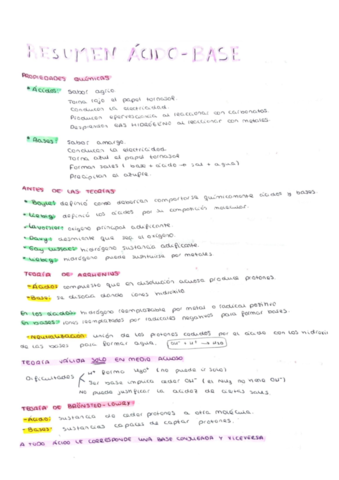 RESUMEN ÁCIDO-BASE
PROPIEDADES QUÍMICAS:
• Ácidos: Sabor agrio
Torna rojo el papel tornasol.
Conducen la electricidad.
Producen efervescencia al reaccionar con carbonatos.
Desprenden GAS HIDRÓGENO al reaccionar con metales.
• Bases: Sabor amargo.
Conducen la electricidad.
Torna azul el papel tornasol
Forman sales (base + ácido → sal + agua)
Precipitan el azufre.
ANTES DE LAS TEORÍAS:
definió como deberían comportarse químicamente ácidos y bases.
definió los ácidos por su composición molecular.
• Lavoisier: oxígeno principal acidificante.
desmiente que sea el oxígeno.
• Gay-Lussac: hidrógeno sustancia acidificante.
hidrógeno puede sustituirse por metales
TEORÍA DE ARRHENIUS
• Ácido: compuesto que en disolución acuosa produce protones.
• Base: se disocia dando iones hidroxilo.
En los ácidos: hidrógeno reemplazable por metal o radical positivo
En bases: iones reemplazables por radicales negativos para formar bases.
• Neutralización: unión de los protones cedidos por el ácido con los hidroxi
de las bases para formar agua. OH⁻ + H⁺ → H₂O
TEORÍA VÁLIDA SOLO EN MEDIO ACUOSO
Dificultades H⁺ forma H₃O⁺ (no puede ir solo)
Ser base implica ceder OH⁻ (el NH₃ no tiene OH⁻)
No puede justificar la acidez de ciertas sales.
TEORÍA DE BRÖNSTED-LOWRY:
• Ácido: sustancia de ceder protones a otra molécula.
• Bases: sustancias capaces de captar protones.
A TODO ÁCIDO LE CORRESPONDE UNA BASE CONJUGADA Y VICEVERSA.